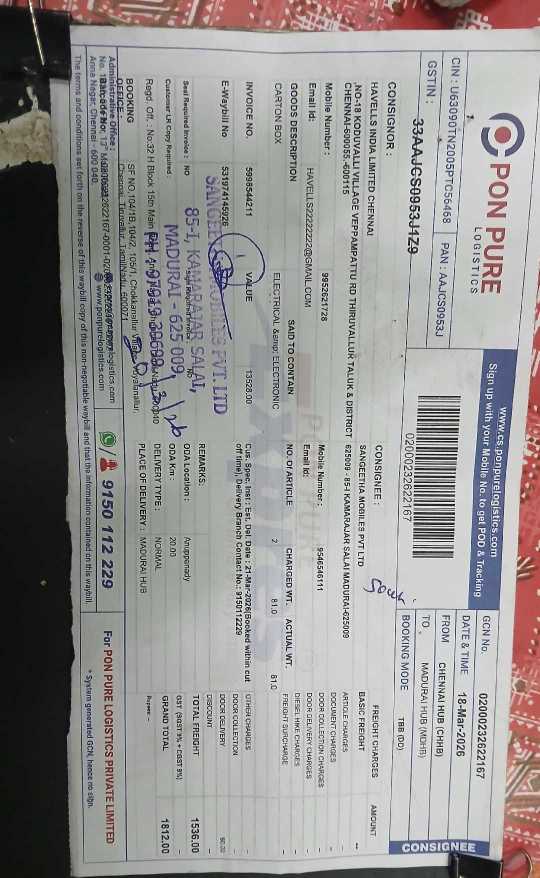 PON PURE
LOGISTICS
CIN : U63090TN2005PTC56468 PAN : AAJCS0953J
GSTIN : 33AAJCS0953J1Z9
www.cs.ponpurelogistics.com
Sign up with your Mobile No. to get POD & Tracking
02000232622167
GCN No 02000232622167
DATE & TIME 18-Mar-2026
FROM CHENNAI HUB (CHHB)
TO MADURAI HUB (MDHB)
BOOKING MODE TBB (DD)
CONSIGNEE
CONSIGNOR :
HAVELLS INDIA LIMITED CHENNAI
NO-18 KODUVALLI VILLAGE VEPPAMPATTU RD THIRUVALLUR TALUK & DISTRICT
CHENNAI-600055.-600115
Mobile Number : 9952621728
Email Id: HAVELLS22222222@GMAIL.COM
CONSIGNEE :
SANGEETHA MOBILES PVT LTD
625009 - 85-I KAMARAJAR SALAI MADURAI-625009
Mobile Number : 9546546111
Email Id:
GOODS DESCRIPTION SAID TO CONTAIN NO. Of ARTICLE CHARGED WT. ACTUAL WT.
CARTON BOX ELECTRICAL &amp; ELECTRONIC 2 81.0 81.0
INVOICE NO. VALUE
5998544211 13528.00
E-Waybill No 531974145926
Seal Required Invoice : NO
Customer LR Copy Required :
Cus. Spec. Inst : Est. Del. Date : 21-Mar-2026(Booked within cut
off time), Delivery Branch Contact No.: 9150112229
REMARKS:
ODA Location : Anuppanady
ODA Km : 20.00
DELIVERY TYPE : NORMAL
PLACE OF DELIVERY : MADURAI HUB
FREIGHT CHARGES AMOUNT
BASIC FREIGHT --
ARTICLE CHARGES
DOCUMENT CHARGES
DOOR COLLECTION CHARGES
DOOR DELIVERY CHARGES
DIESEL HIKE CHARGES
FREIGHT SURCHARGE
OTHER CHARGES
DOOR COLLECTION
DOOR DELIVERY
DISCOUNT
TOTAL FREIGHT 1536.00
GST (SGST 9% + CGST 9%)
GRAND TOTAL 1812.00
Rupees --
MOBILES PVT. LTD
85-1, KAMARAJAR SALAI,
MADURAI - 625 009
Regd. Off. : No:32 H Block 15th Main
BOOKING OFFICE : SF NO,104/1B, 104/2, 105/1, Chokkanallur
Chennai, Tiruvallur, TamilNadu, 600071
Administrative Office :
Anna Nagar, Chennai - 600 040.
www.ponpurelogistics.com
9150 112 229
For PON PURE LOGISTICS PRIVATE LIMITED
The terms and conditions set forth on the reverse of this waybill copy of this non-negotiable waybill and that the information contained on this waybill.
* System generated GCN, hence no sign.